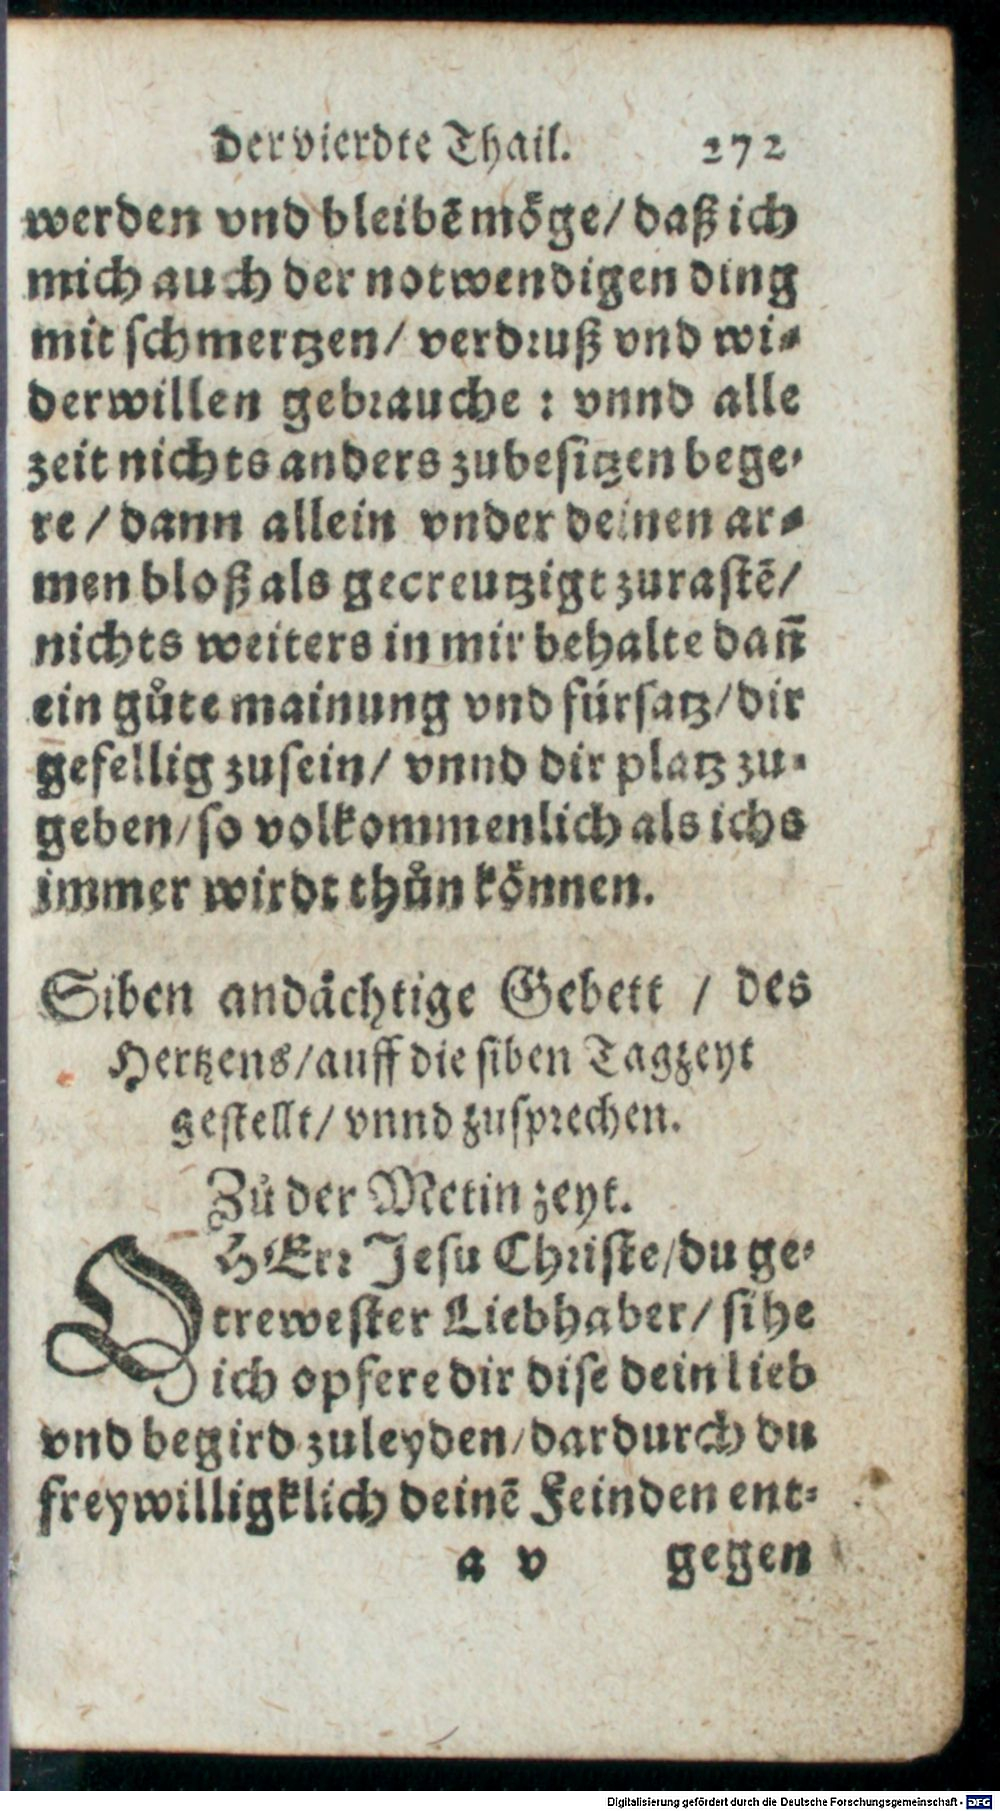 Der vierdte Thail. 272
werden vnd bleibē möge/ daß ich
mich auch der notwendigen ding
mit schmertzen/ verdruß vnd wi⸗
derwillen gebrauche : vnnd alle
zeit nichts anders zubesitzen bege⸗
re / dann allein vnder deinen ar⸗
men bloß als gecreutzigt zurastē/
nichts weiters in mir behalte dañ
ein gůte mainung vnd fürsatz/ dir
gefellig zusein/ vnnd dir platz zu⸗
geben/ so volkommenlich als ichs
immer wirdt thůn können.
Siben andächtige Gebett / des
Hertzens/ auff die siben Tagzeyt
gestellt/ vnnd zusprechen.
Zů der Metin zeyt.
O HErr Jesu Christe/ du ge⸗
trewester Liebhaber/ sihe
ich opfere dir dise dein lieb
vnd begird zuleyden/ dardurch du
freywilligklich deinē Feinden ent⸗
a v gegen
Digitalisierung gefördert durch die Deutsche Forschungsgemeinschaft - DFG